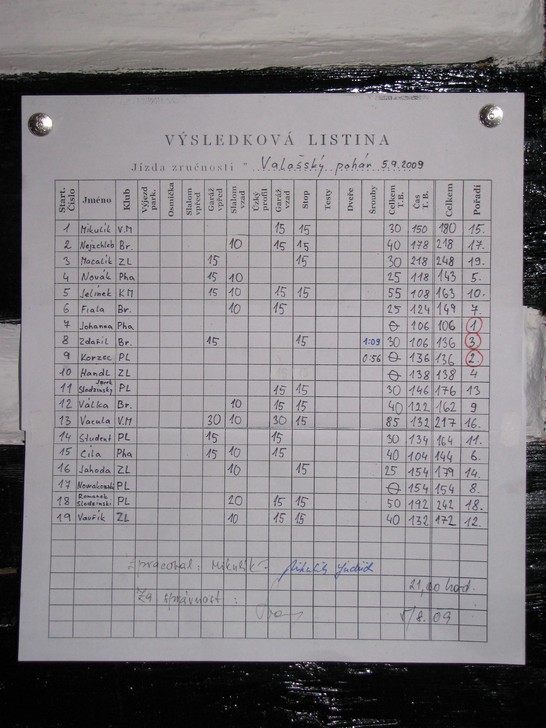 VÝSLEDKOVÁ LISTINA
Jízda zručnosti " Valašský pohár 5.9.2009
Start. Číslo Jméno Klub Výjezd park. Osmička Slalom vpřed Garáž vpřed Slalom vzad Úzký profil Garáž vzad Stop Testy Dveře Šrouby Celkem T.B. Čas T.B. Celkem Pořadí
1 Mikulík V.M 15 15 30 150 180 15.
2 Nejezchleb Br. 10 15 15 40 178 218 17.
3 Macalík ZL 15 15 30 218 248 19.
4 Novák Pha 15 10 25 118 143 5.
5 Jelínek KM 15 10 15 15 55 108 163 10.
6 Fiala Br. 10 15 25 124 149 7.
7 Johanna Pha 0 106 106 1
8 Zdařil Br. 15 15 1:09 30 106 136 3
9 Korzec PL 0:56 0 136 136 2
10 Handl ZL 0 138 138 4
11 Slodzinski PL 15 15 30 146 176 13
12 Válka Br. 10 15 15 40 122 162 9
13 Vacula V.M 30 10 30 15 85 132 217 16.
14 Student PL 15 15 30 134 164 11.
15 Cila Pha 15 10 15 40 104 144 6.
16 Jahoda ZL 10 15 25 154 179 14.
17 Nowakowski PL 0 154 154 8.
18 Romanek Slodzinski PL 20 15 15 50 192 242 18.
19 Vavřík ZL 10 15 15 40 132 172 12.
Zpracoval: Mikulík
21,00 hod.
Za správnost:
5/8.09